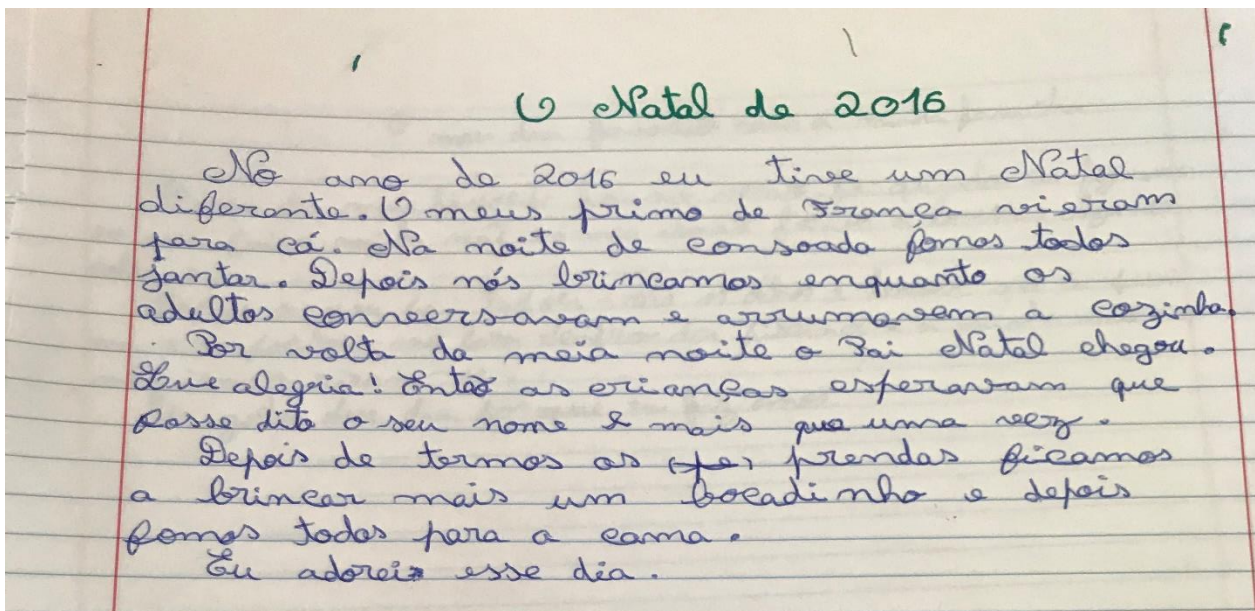 O Natal de 2016
No ano de 2016 eu tive um Natal
diferente. O meus primo de França vieram
para cá. Na noite de consoada fomos todos
jantar. Depois nós brincamos enquanto os
adultos conversavam e arrumavem a cozinha.
Por volta da meia noite o Pai Natal chegou.
Que alegria! Então as crianças esperavam que
fosse dito o seu nome e mais que uma vez.
Depois de termos as prendas ficamos
a brincar mais um bocadinho e depois
fomos todos para a cama.
Eu adorei esse dia.